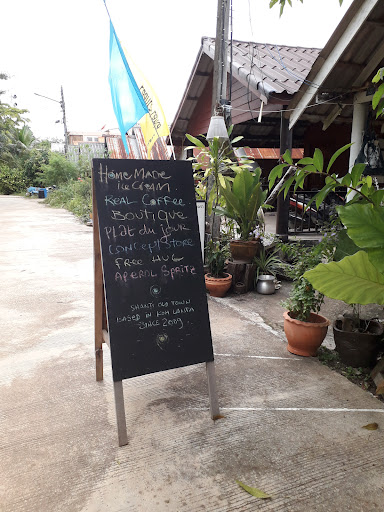 HOME MADE
Ice CREAM
REAL COFFEE
BOUTIQUE
PLAT DU JOUR
CONCEPT STORE
FREE HUG
APEROL SPRITZ
SHANTI OLD TOWN
BASED IN KOH LANTA
SINCE 2009